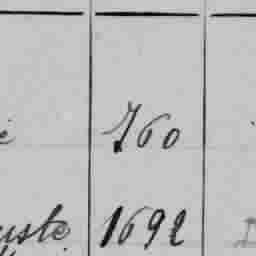 760
uste 1692